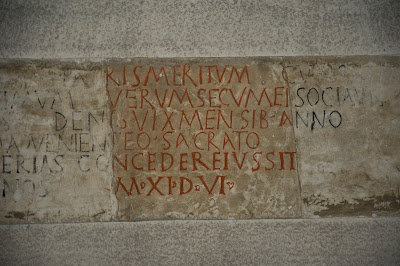 RISMERITUM
VERUMSECUMEISOCIAV
DEN UIXMENSIB·ANNO
VENIENTEO·SACRATO
ERIAS CONCEDEREIUSSIT
NOS M·XI·D·VI